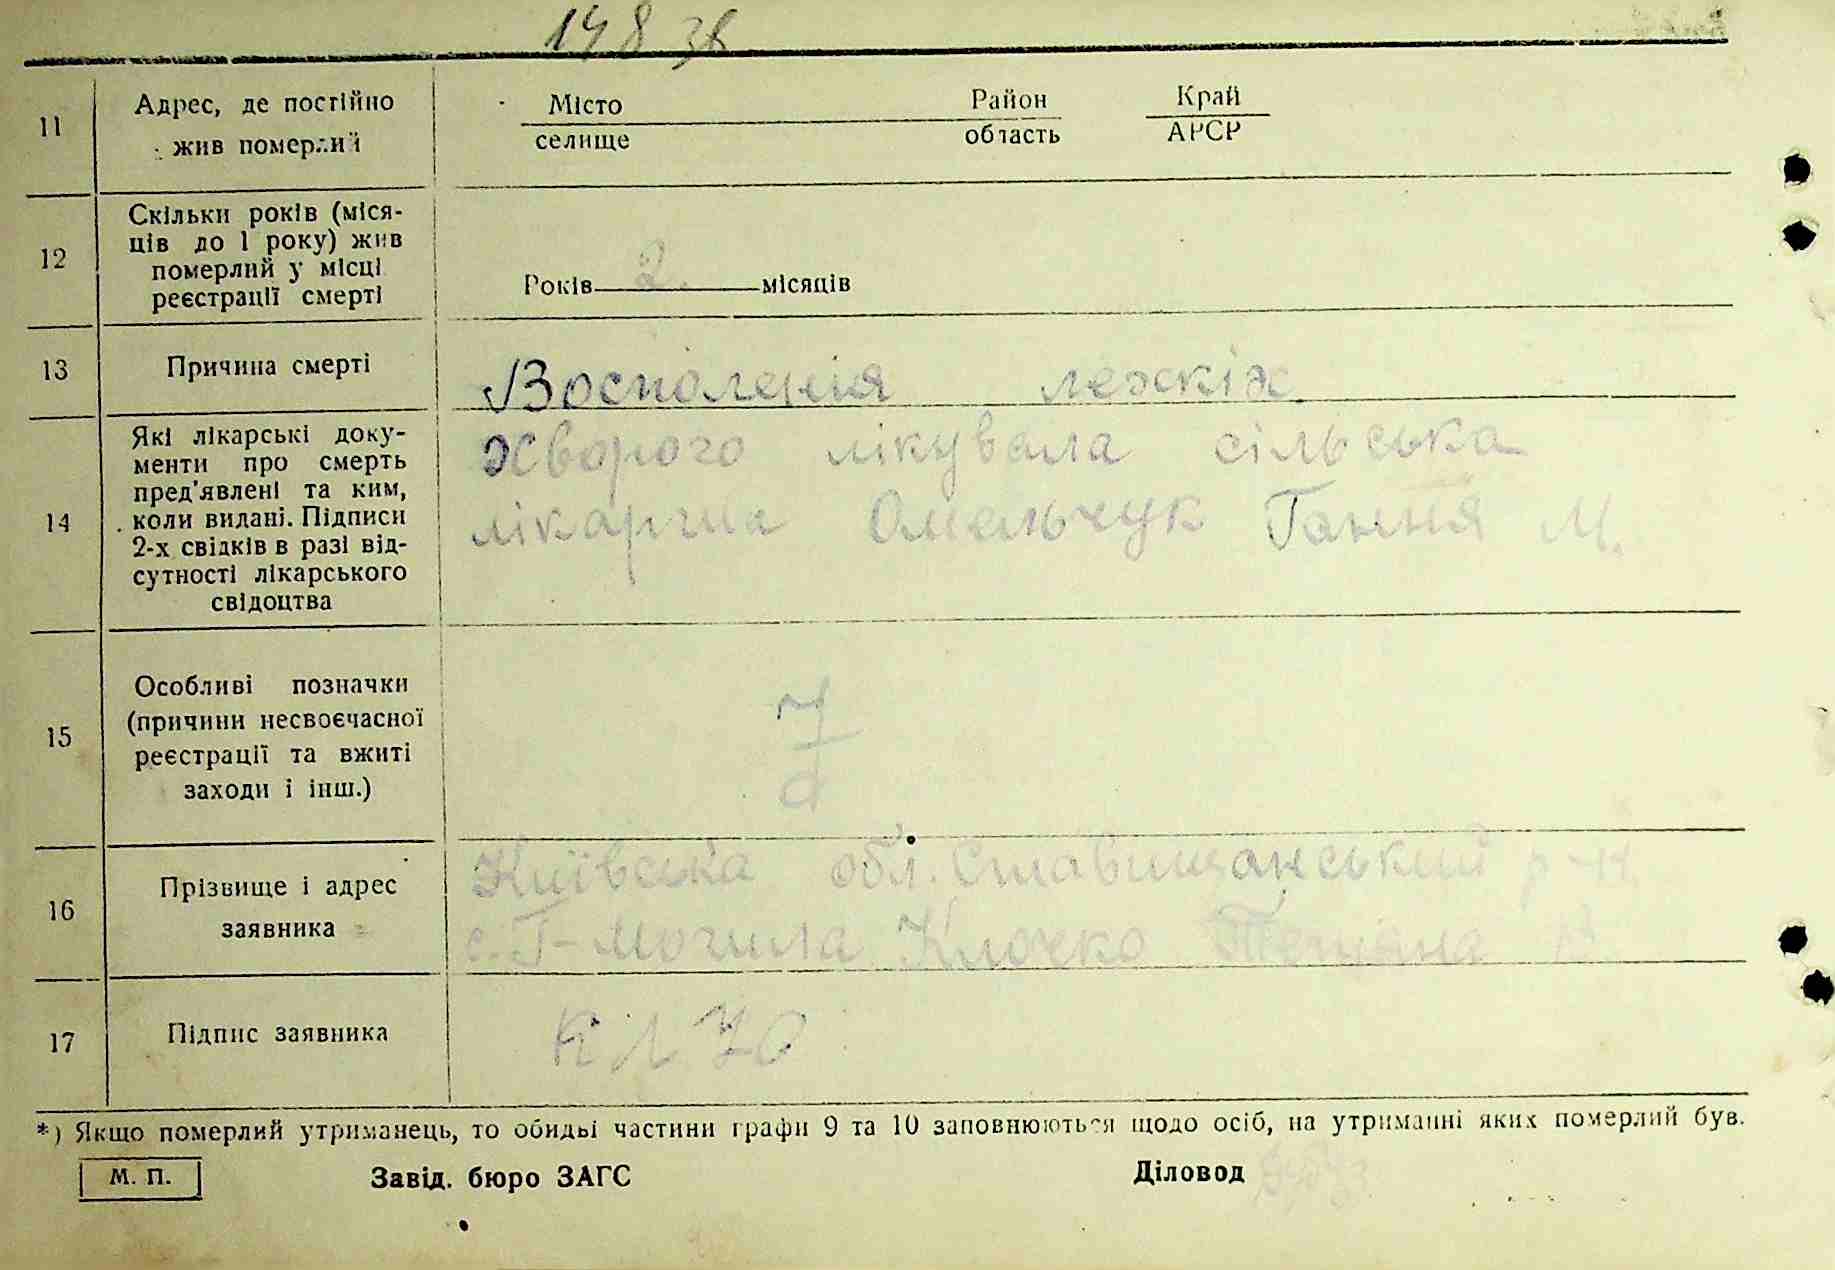 148 зв
11
Адрес, де постійно
жив померлий
Місто
селище
Район
область
Край
АРСР
12
Скільки років (міся-
ців до 1 року) жив
померлий у місці
реєстрації смерті
Років 2. місяців
13
Причина смерті
Восполенія лежкіх.
14
Які лікарські доку-
менти про смерть
пред'явлені та ким,
коли видані. Підписи
2-х свідків в разі від-
сутності лікарського
свідоцтва
Хворого лікувала сільська
лікарша Омельчук Гання М.
15
Особливі позначки
(причини несвоєчасної
реєстрації та вжиті
заходи і інш.)
16
Прізвище і адрес
заявника
Київська обл. Ставищанський р-н.
с. Г-Могила Клочко Тетяна
17
Підпис заявника
*) Якщо померлий утриманець, то обидві частини графи 9 та 10 заповнюються щодо осіб, на утриманні яких померлий був.
М. П.
Завід. бюро ЗАГС
Діловод